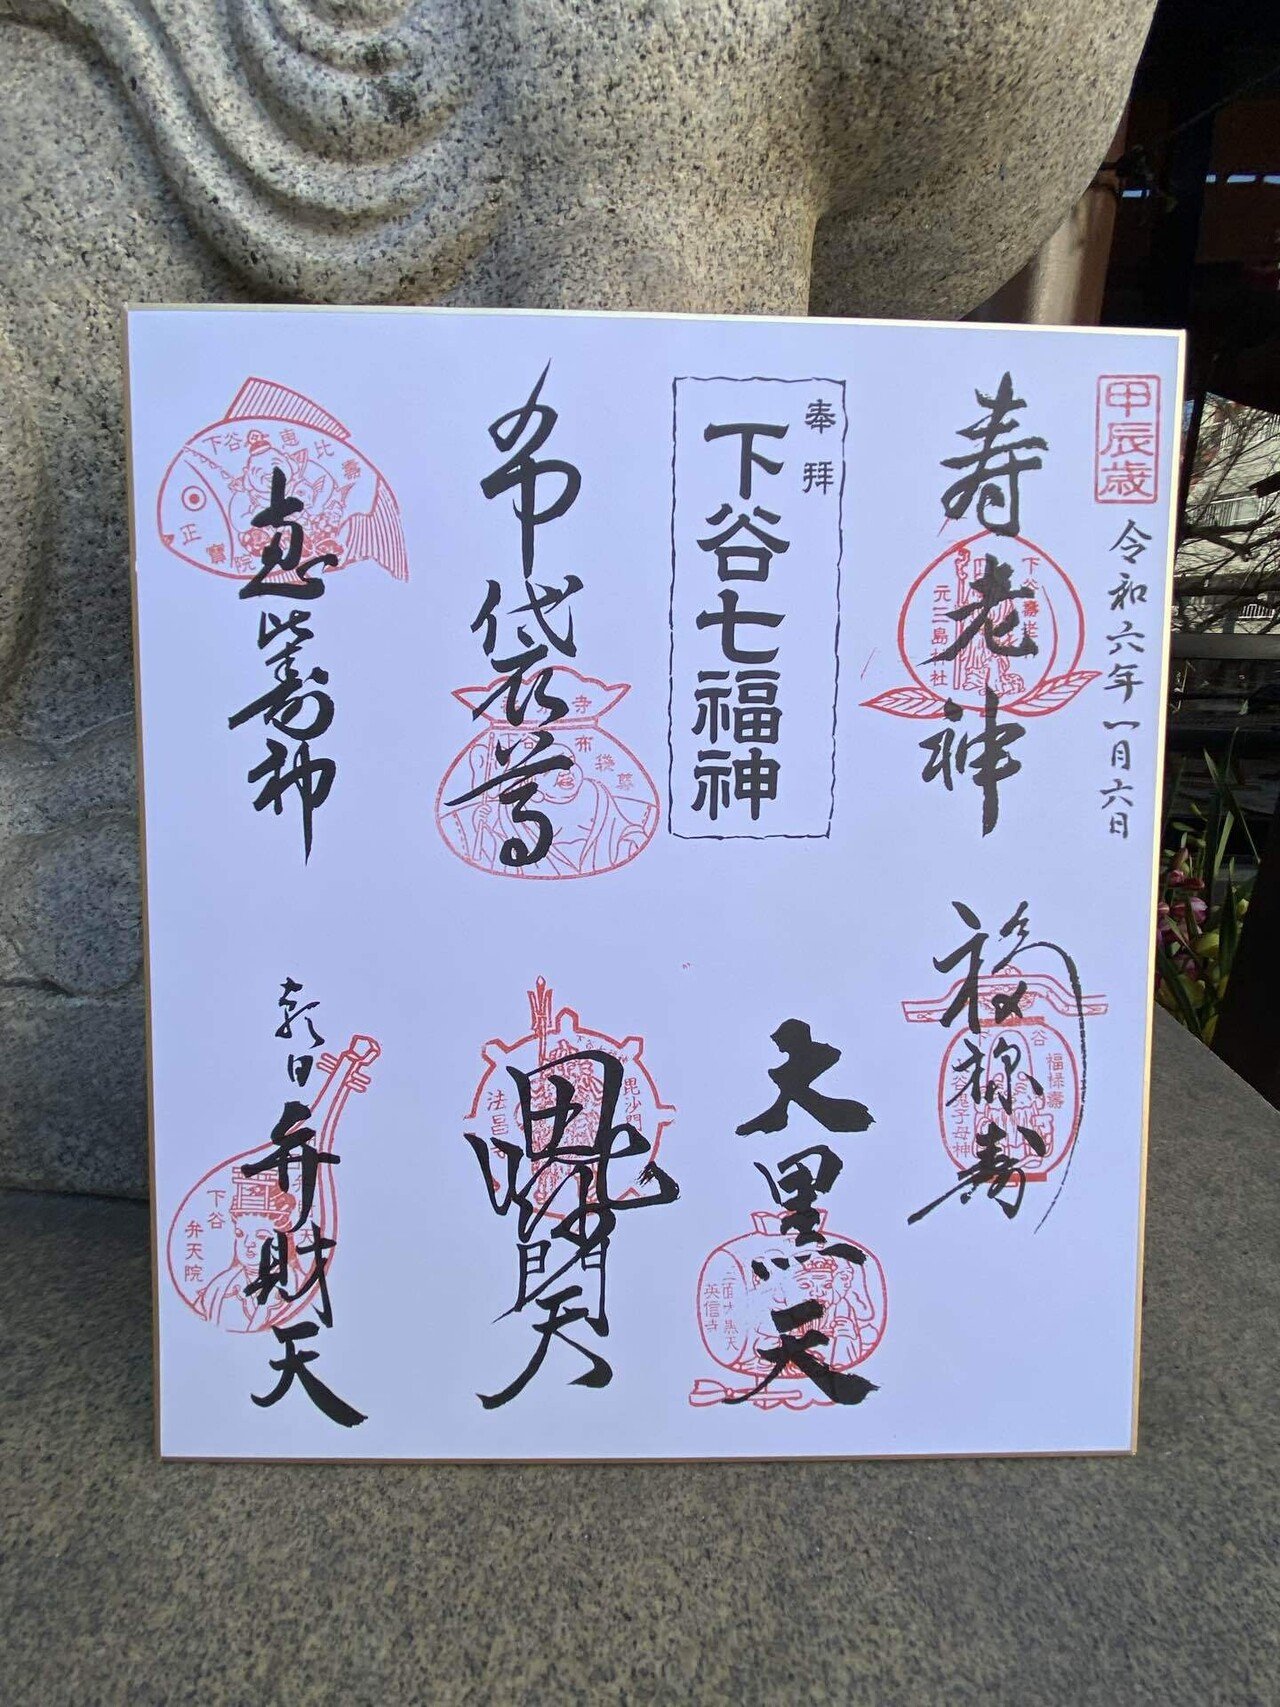 甲辰歳
令和六年一月六日
寿老神
元三島神社
福禄寿
下谷
福禄壽
奉拝
下谷七福神
大黒天
三面大黒天
英信寺
布袋尊
寺
下谷
布袋尊
毘沙門天
毘沙門
法昌
恵比寿神
下谷
恵比壽
正寶院
朝日弁財天
下谷
弁天院